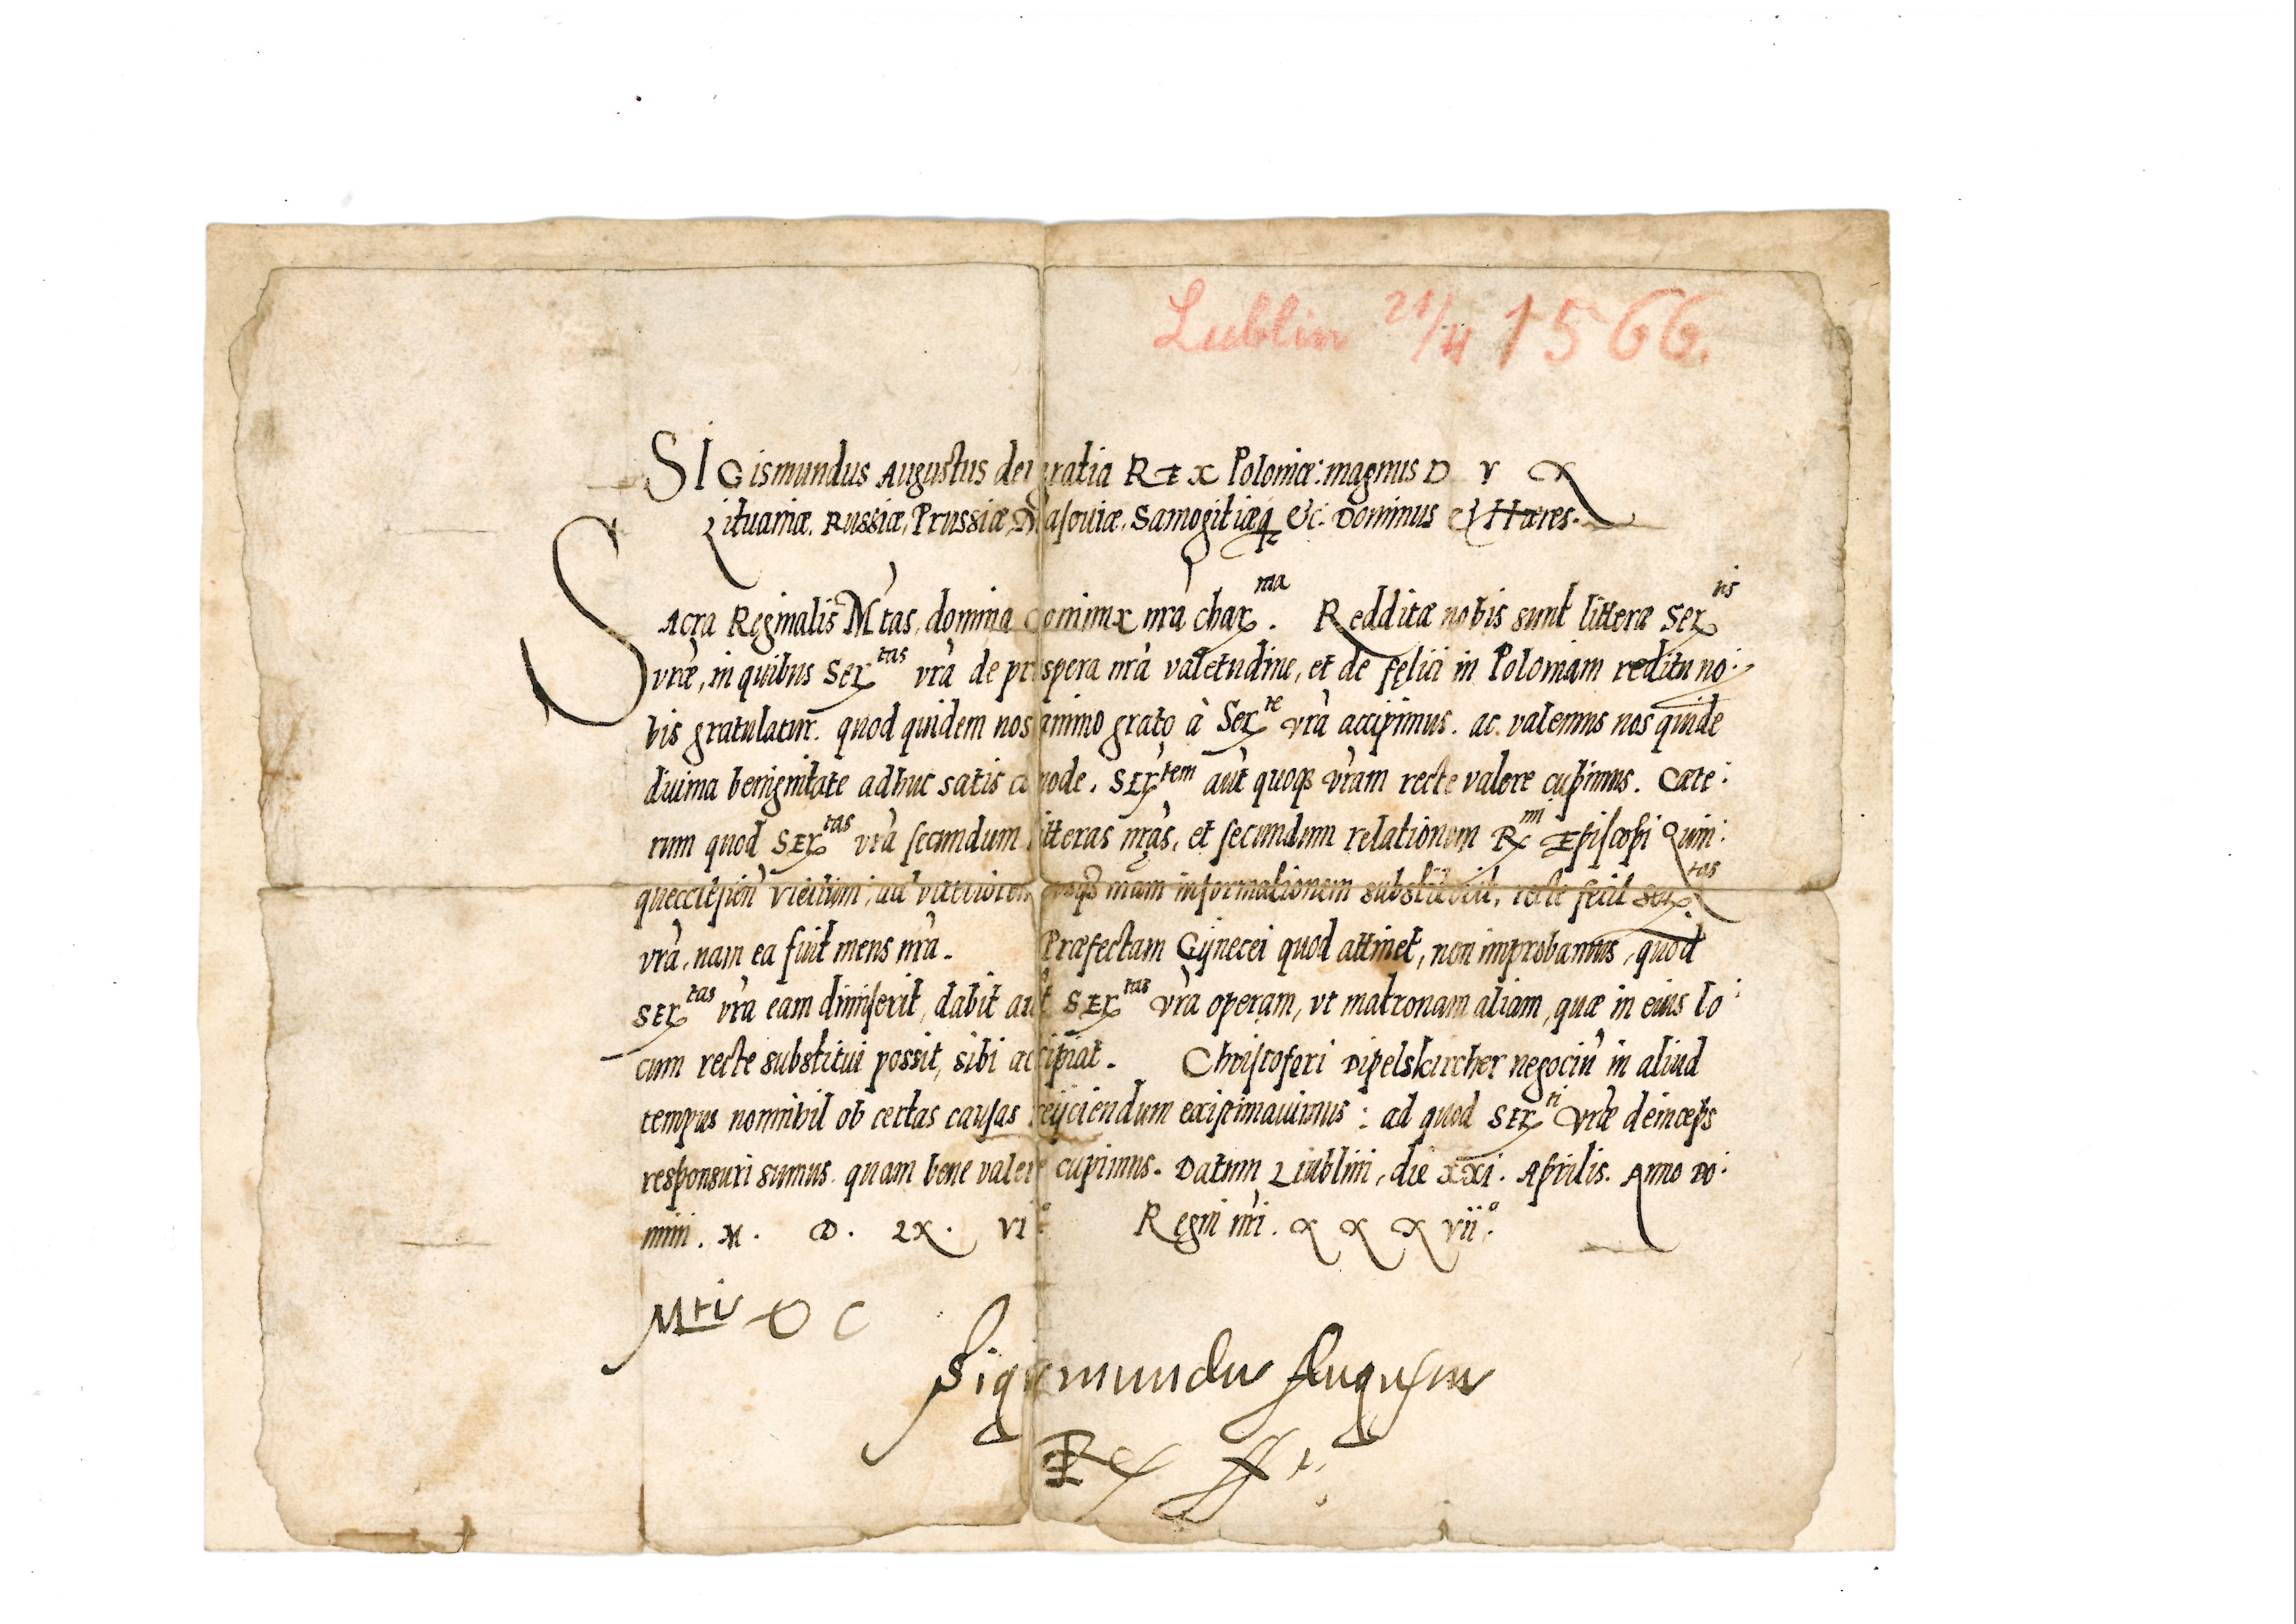 Lublin 21/4 1566.
SIGismundus Augustus dei gratia REX Poloniæ: magnus D V X
Lituaniæ, Russiæ, Prussiæ, Masouiæ, Samogitiæq₃ &c. Dominus et Hæres.
SAcra Reginalis Mtas, domina coniunx nrà char^ma. Redditæ nobis sunt litteræ Ser^tis
vræ, in quibus Ser^tas vrà de prospera nrà valetudine, et de felici in Poloniam reditu no:
bis gratulatur. quod quidem nos animo grato à Ser^te vrà accipimus. ac valemus nos quidē
diuina benignitate adhuc satis cōmode. Ser^tem aūt quoqȝ vràm recte valere cupimus. Cæte:
rum quod Ser^tas vrà secundum litteras nràs, et secundum relationem R^mi Episcopi Quin:
queecclesieñ mam informationem recte fecit Ser^tas
vrà, nam ea fuit mens nrà. Præfectam Gynecei quod attinet, non improbamus, quod
Ser^tas vrà eam dimiserit, dabit aūt Ser^tas vrà operam, vt matronam aliam, quæ in eius lo:
cum recte substitui possit, sibi accipiat. Christoferi Dipelskircher negociū in aliud
tempus nonnihil ob certas causas reijciendum existimauimus: ad quod Ser^ti vræ deinceps
responsuri sumus. quam bene valere cupimus. Datum Liublini, die xxi. Aprilis. Anno Do:
mini. M. D. LX. VI°. Regni nri. X X X vii°.
Sigismundus Augustus
Rex